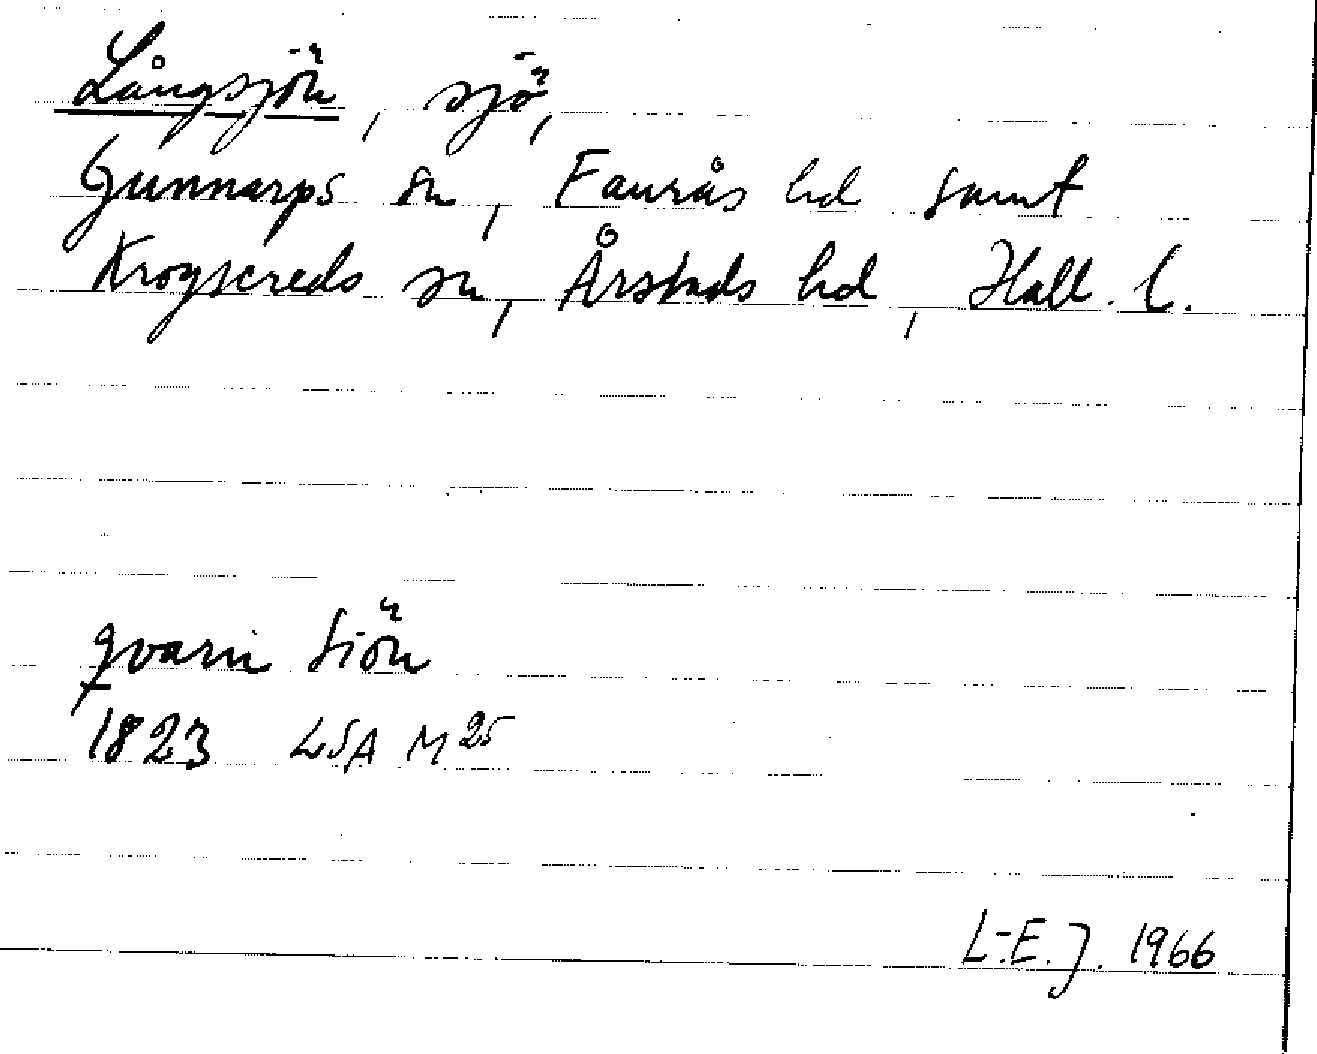 Långsjön, sjö,
Gunnarps sn, Faurås hd samt
Krogsereds sn, Årstads hd, Hall. l.
qvarn Siön
1823 LSA M25
L-E. J. 1966